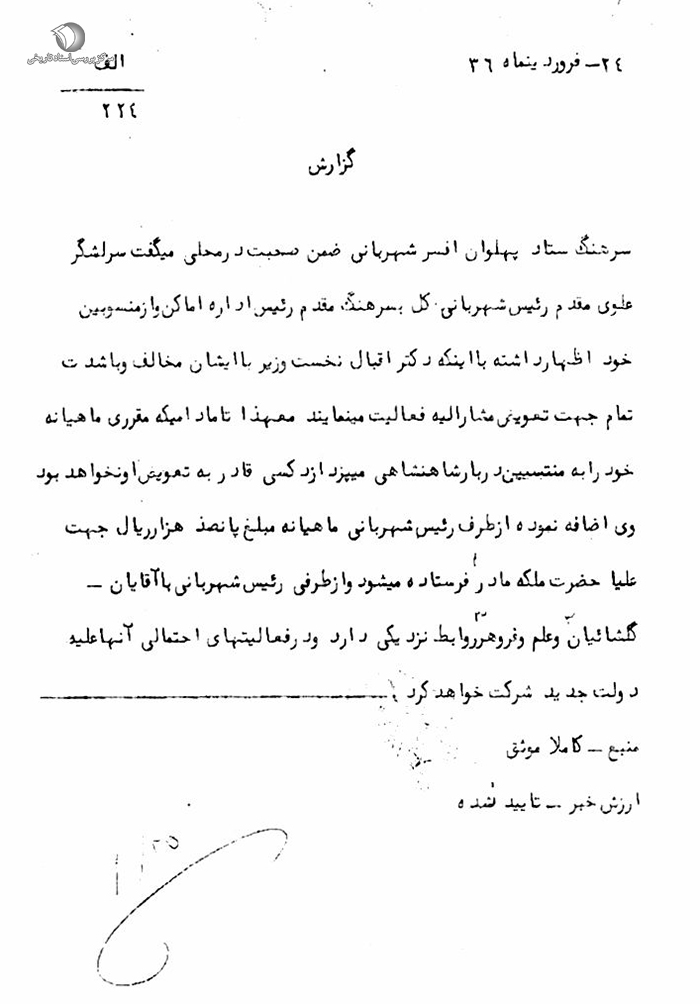 مرکز بررسی اسناد تاریخی
۲٤ـ فروردینماه ۳٦
الف
۲۲٤
گزارش
سرهنگ ستاد پهلوان افسر شهربانی ضمن صحبت درمحلی میگفت سرلشگر
علوی مقدم رئیس شهربانی کل بسرهنگ مقدم رئیس اداره اماکن وازمنسوبین
خود اظهارداشته بااینکه دکتر اقبال نخست وزیر باایشان مخالف وباشدت
تمام جهت تعویض مشارالیه فعالیت مینمایند معهذا تامادامیکه مقرری ماهیانه
خود رابه منتسبین دربارشاهنشاهی میپردازدکسی قادر به تعویض اونخواهد بود
وی اضافه نموده ازطرف رئیس شهربانی ماهیانه مبلغ پانصد هزارریال جهت
علیا حضرت ملکه مادر فرستاده میشود وازطرفی رئیس شهربانی باآقایان ـ
گلشائیان وعلم وفروهر روابط نزدیکی دارد ودرفعالیتهای احتمالی آنهاعلیه
دولت جدید شرکت خواهدکرد
منبع ـ کاملا موثق
ارزش خبر ـ تایید نشده